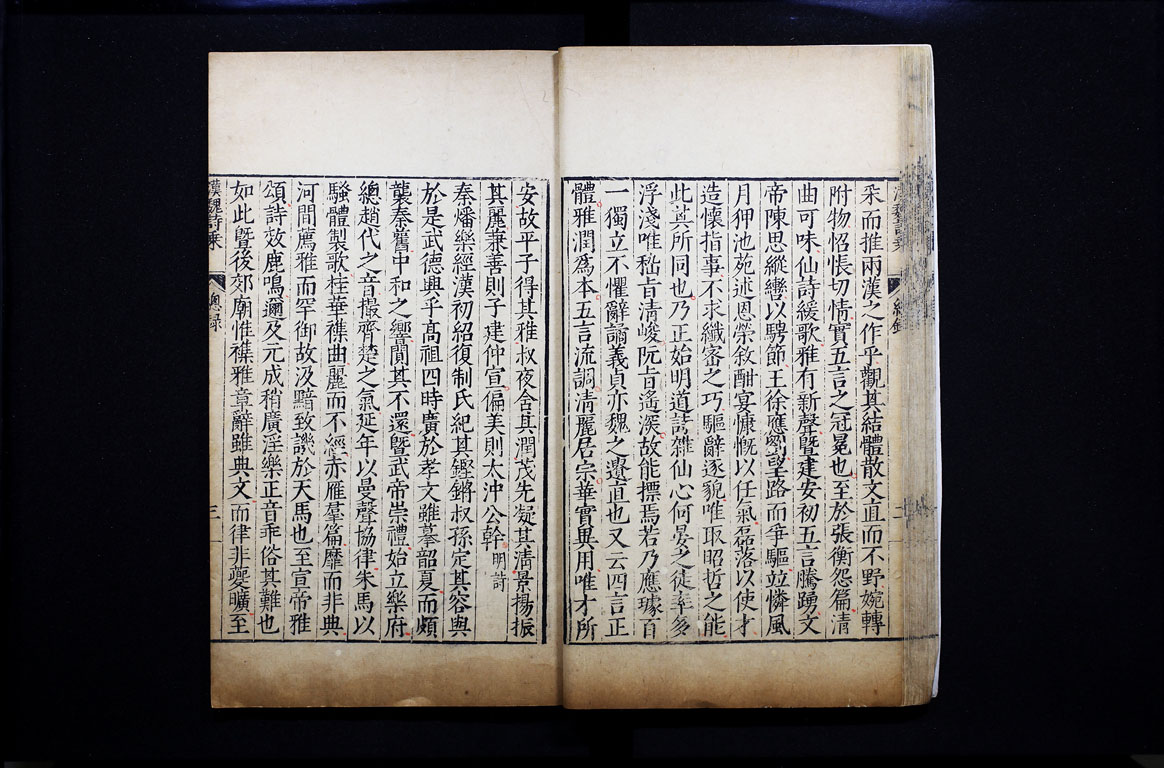 采而推兩漢之作乎觀其結體散文直而不野婉轉
附物怊悵切情實五言之冠冕也至於張衡怨篇清
曲可味仙詩緩歌雅有新聲暨建安初五言騰踴文
帝陳思縱轡以騁節王徐應劉望路而爭驅竝憐風
月狎池苑述恩榮敘酣宴慷慨以任氣磊落以使才
造懷指事不求纖密之巧驅辭逐貌唯取昭晢之能
此其所同也乃正始明道詩雜仙心何晏之徒率多
浮淺唯嵇旨清峻阮旨遙深故能標焉若乃應璩百
一獨立不懼辭譎義貞亦魏之遺直也又云四言正
體雅潤為本五言流調清麗居宗華實異用唯才所
安故平子得其雅叔夜含其潤茂先凝其清景揚振
其麗兼善則子建仲宣偏美則太沖公幹明詩
秦燔樂經漢初紹復制氏紀其鏗鏘叔孫定其容與
於是武德興乎高祖四時廣於孝文雖摹韶夏而頗
襲秦舊中和之響闃其不還暨武帝崇禮始立樂府
總趙代之音撮齊楚之氣延年以曼聲協律朱馬以
騷體製歌桂華襍曲麗而不經赤雁羣篇靡而非典
河間薦雅而罕御故汲黯致譏於天馬也至宣帝雅
頌詩效鹿鳴邇及元成稍廣淫樂正音乖俗其難也
如此暨後郊廟惟襍雅章辭雖典文而律非夔曠至
漢魏詩乘 總錄 三